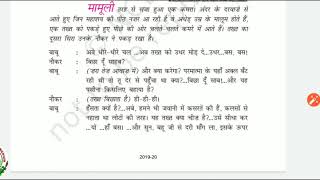 मामूली तरह से सजा हुआ एक कमरा। अंदर के दरवाज़े से
आते हुए जिन महाशय की पीठ नज़र आ रही है वे अधेड़ उम्र के मालूम होते हैं,
एक तख्त को पकड़े हुए पीछे की ओर चलते-चलते कमरे में आते हैं। तख्त का
दूसरा सिरा उनके नौकर ने पकड़ रखा है।
बाबू : अबे धीरे-धीरे चल ...अब तख्त को उधर मोड़ दे...उधर...बस, बस!
नौकर : बिछा दूँ साहब?
बाबू : (ज़रा तेज़ आवाज़ में) और क्या करेगा? परमात्मा के यहाँ अक्ल बँट
रही थी तो तू देर से पहुँचा था क्या?...बिछा दूँ साब!...और यह
पसीना किसलिए बहाया है?
नौकर : (तख्त बिछाता है) ही-ही-ही।
बाबू : हँसता क्यों है?...अबे, हमने भी जवानी में कसरतें की हैं, कलसों से
नहाता था लोटों की तरह। यह तख्त क्या चीज़ है?...उसे सीधा कर
...यों ...हाँ बस। ...और सुन, बहू जी से दरी माँग ला, इसके ऊपर
2019-20